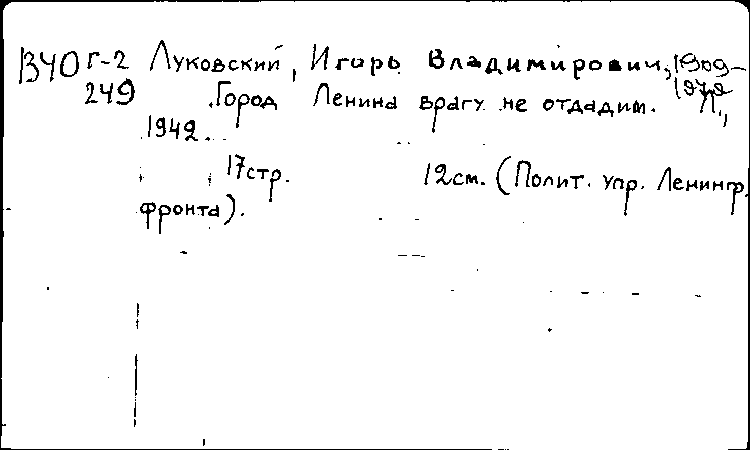 В40 г-2 Луковский, Игорь Владимирович, 1909-
249 Город Ленина врагу не отдадим. Л.,
1942.
17стр. 12см. (Полит. упр. Ленингр.
фронта).